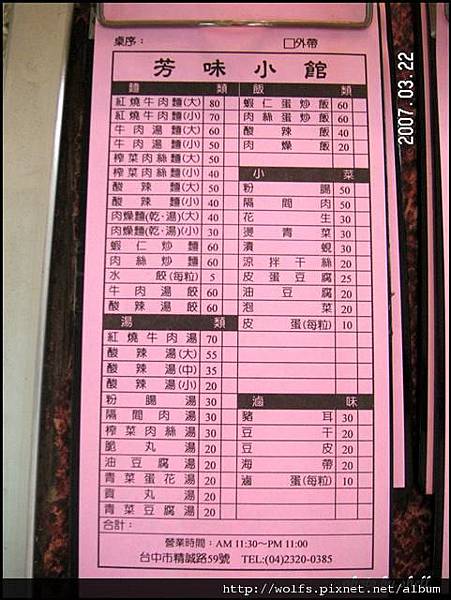 桌序： □外帶
芳味小館
麵類
紅燒牛肉麵(大) 80
紅燒牛肉麵(小) 70
牛肉湯麵(大) 60
牛肉湯麵(小) 50
榨菜肉絲麵(大) 50
榨菜肉絲麵(小) 40
酸辣麵(大) 50
酸辣麵(小) 40
肉燥麵(乾‧湯)(大) 40
肉燥麵(乾‧湯)(小) 30
蝦仁炒麵 60
肉絲炒麵 60
水餃(每粒) 5
牛肉湯餃 60
酸辣湯餃 60
湯類
紅燒牛肉湯 70
酸辣湯(大) 55
酸辣湯(中) 35
酸辣湯(小) 20
粉腸湯 30
隔間肉湯 30
榨菜肉絲湯 30
脆丸湯 20
油豆腐湯 20
青菜蛋花湯 20
貢丸湯 20
青菜豆腐湯 20
飯類
蝦仁蛋炒飯 60
肉絲蛋炒飯 60
酸辣飯 40
肉燥飯 20
小菜
粉腸 50
隔間肉 50
花生 30
燙青菜 30
漬蜆 30
涼拌干絲 20
皮蛋豆腐 25
油豆腐 20
泡菜 20
皮蛋(每粒) 10
滷味
豬耳 30
豆干 20
豆皮 20
海帶 20
滷蛋(每粒) 10
合計：
營業時間：AM 11:30~PM 11:00
台中市精誠路59號 TEL:(04)2320-0385
2007.03.22
http://wolfs.pixnet.net/album